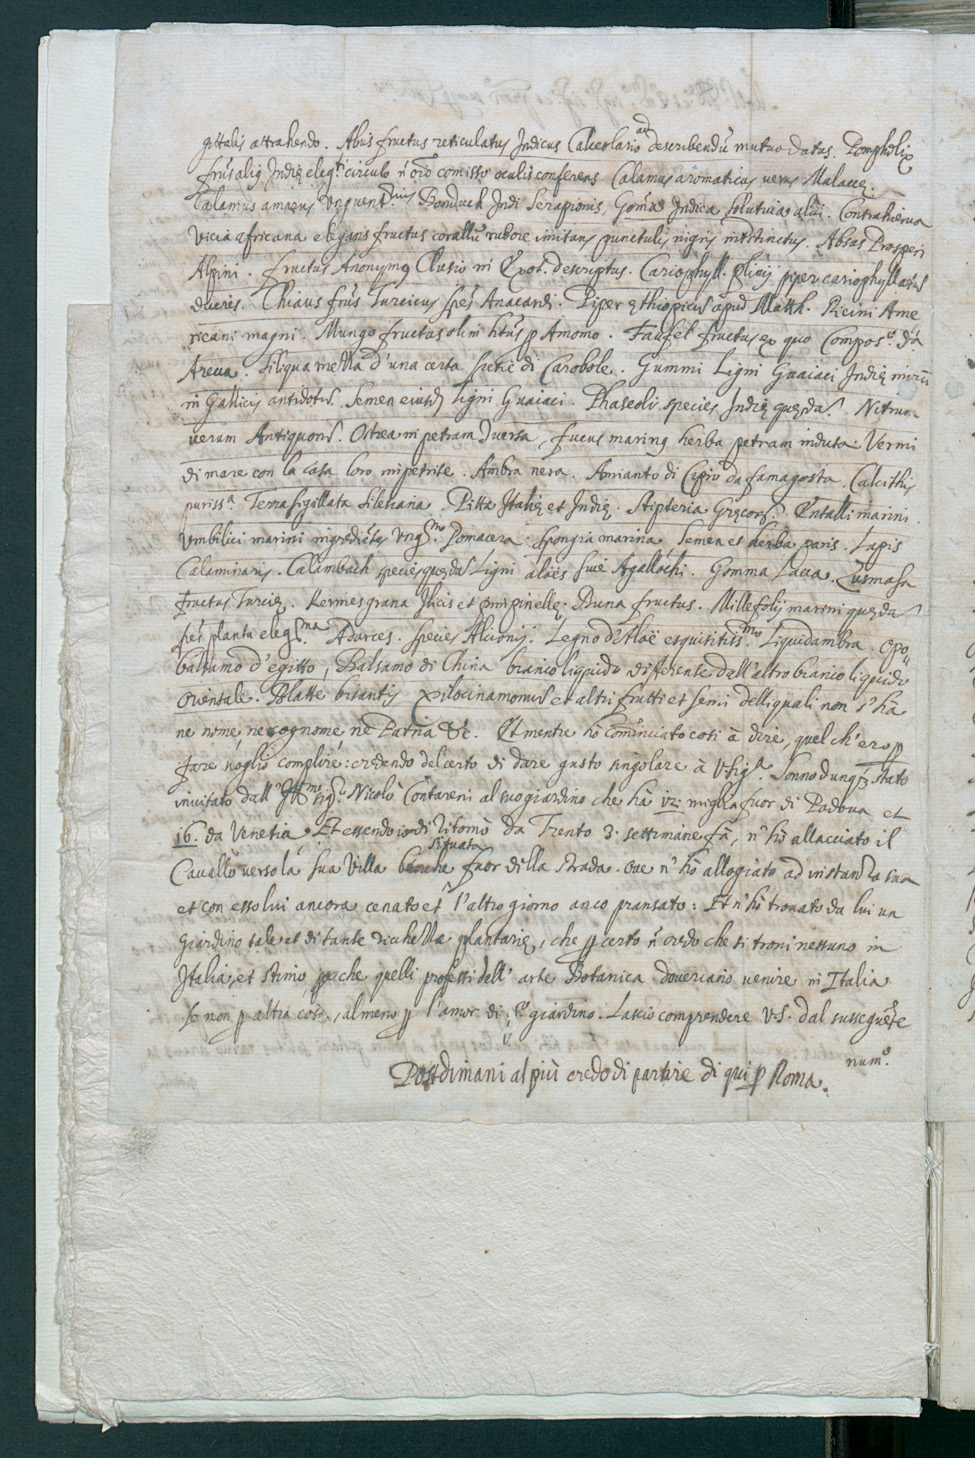 gittalis attrahendo. Alius fructus reticulatus Indicus Calceolario ad describendū mutuo datus. Pompholix
frūs aliq Indię elegt circulo n oīo comisso oculis conferens. Calamus aromaticus verus Malaccę.
Calamus amarus vnguentariis Bonduch Indi Serapionis, Goma Indica solutiua alui. Contrahierua
Vicia africana elegans fructus corallū rubore imitans punctulis nigris intstinctus. Absas Prosperi
Alpini. fructus Anonymg Clusio in Exot. descriptus. Cariophyll. plinij piper cariophyllatus
diueris. Chiaus frūs Turcicus spēs Anacardi. Piper ęthiopicū apud Matth. Ricini Ame
ricani magni. Mungo fructus olim hītūs p Amomo. Faufel fructus ex quo Composo. dā
Areca. Siliqua mella d'una certa spetie di Carobole. Gummi Ligni Guaiaci Indię
in Gallicis antidotū. Semen eiusd ligni Guaiaci. Phaseoli species Indię quędā. Nitrum
uerum Antiquorū. Ostrea in petram Jversa, fucus maring herba petram induta. Vermi
di mare con la casa loro impetrite. Ambra nera. Amianto di Cipro da famagosta. Calcithis
purissa. Terra sigillata silesiana. Pitta Italię et Indię. Stipteria Gręcorū. Entalli marini.
Vmbilici marini ingrediētes vngto Pomaara. Spongia marina Semen et herba paris. Lapis
Calaminaris. Calambach species quędā Ligni aloës siue Agallochi. Gomma Lacca. Cusmasa
fructus Turcię. Kermes grana Ilicis et pimpinellę. Bruna fructus. Millefolij marini quędā
spēs planta elegma. Adarces. species Alcionij. Legno d'Aloë esquisitissmo Liquidambra. Opo„
balsamo d'egitto, Balsamo di China bianco liquido differente dell'altro bianco liquido
Orientale. Blatte bisantij xilocinamomū et altri frutti et semi delli quali non s'hà
ne nome, ne cognome, nè Patria &c. Et mentre hò cominciato così à dire, quel ch'ero p
fare voglio complire: credendo del certo di dare gusto singolare à V. Siga. Sonno dunq stato
inuitato dall'Illmo Sigr Nicolò Contareni al suo giardino che hà vz: miglia fuor di Padoua et
16. da Venetia, Et essendo io di ritorno da Trento 3. settimane fà, n' hò allacciato il
Cauallo verso la sua Villa situata fuor della strada. oue n' hò allogiato ad instantia sua
et con esso lui ancora cenato et l'altro giorno anco pransato: Et n' hò trouato da lui un
giardino tale et di tante richezze plantarię, che p certo n credo che si troui nessuno in
Italia, et stimo pche quelli professi dell' arte Botanica doueriano venire in Italia
se non p altra cosa, almeno p l'amor di qto giardino. Lascio comprendere V.S. dal susseguēte
numo.
Postdimani al più credo di partire di qui p Roma.